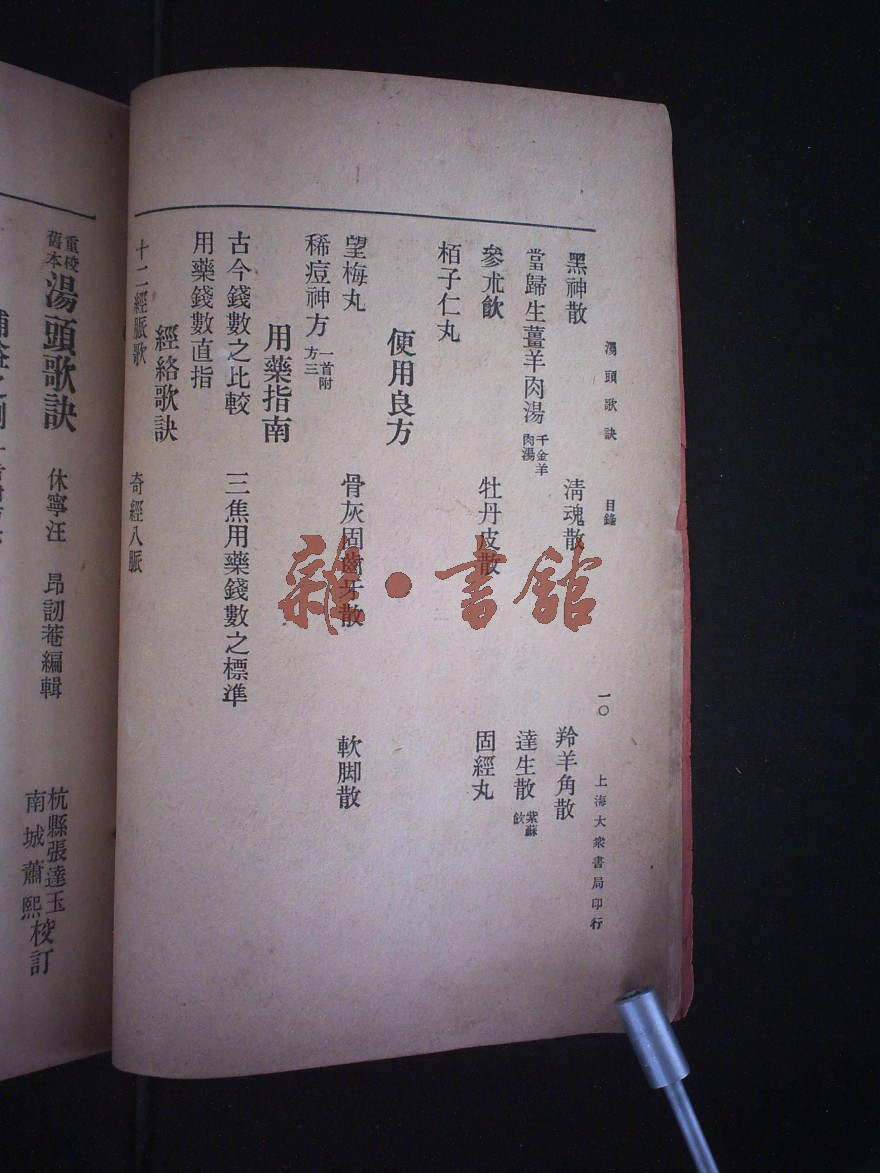 湯頭歌訣 目錄 一〇 上海大衆書局印行
黑神散 清魂散 羚羊角散
當歸生薑羊肉湯 千金羊肉湯 達生散 紫蘇飲
參朮飲 牡丹皮散 固經丸
栢子仁丸
便用良方
望梅丸 骨灰固齒牙散 軟脚散
稀痘神方 一首附方三
用藥指南
古今錢數之比較 三焦用藥錢數之標準
用藥錢數直指
經絡歌訣
十二經脈歌 奇經八脈
重校舊本 湯頭歌訣 休寧汪 昂訒菴編輯 杭縣張達玉 南城蕭熙 校訂
雜·書館